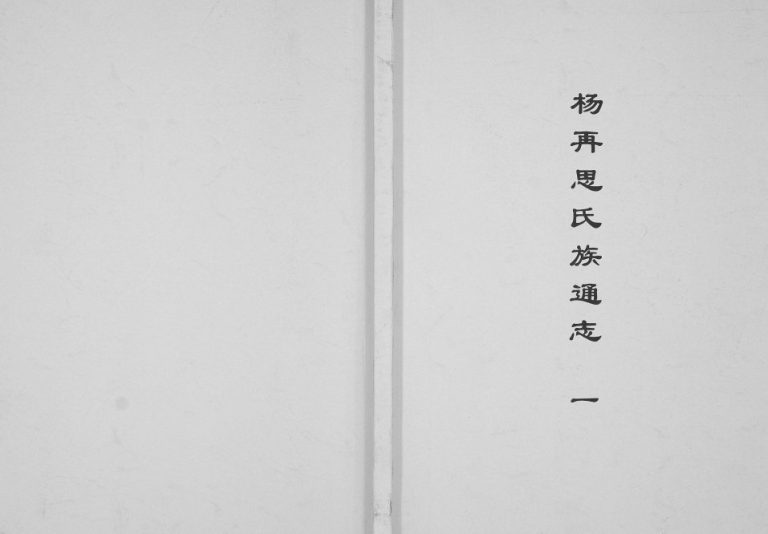 杨再思氏族通志 一